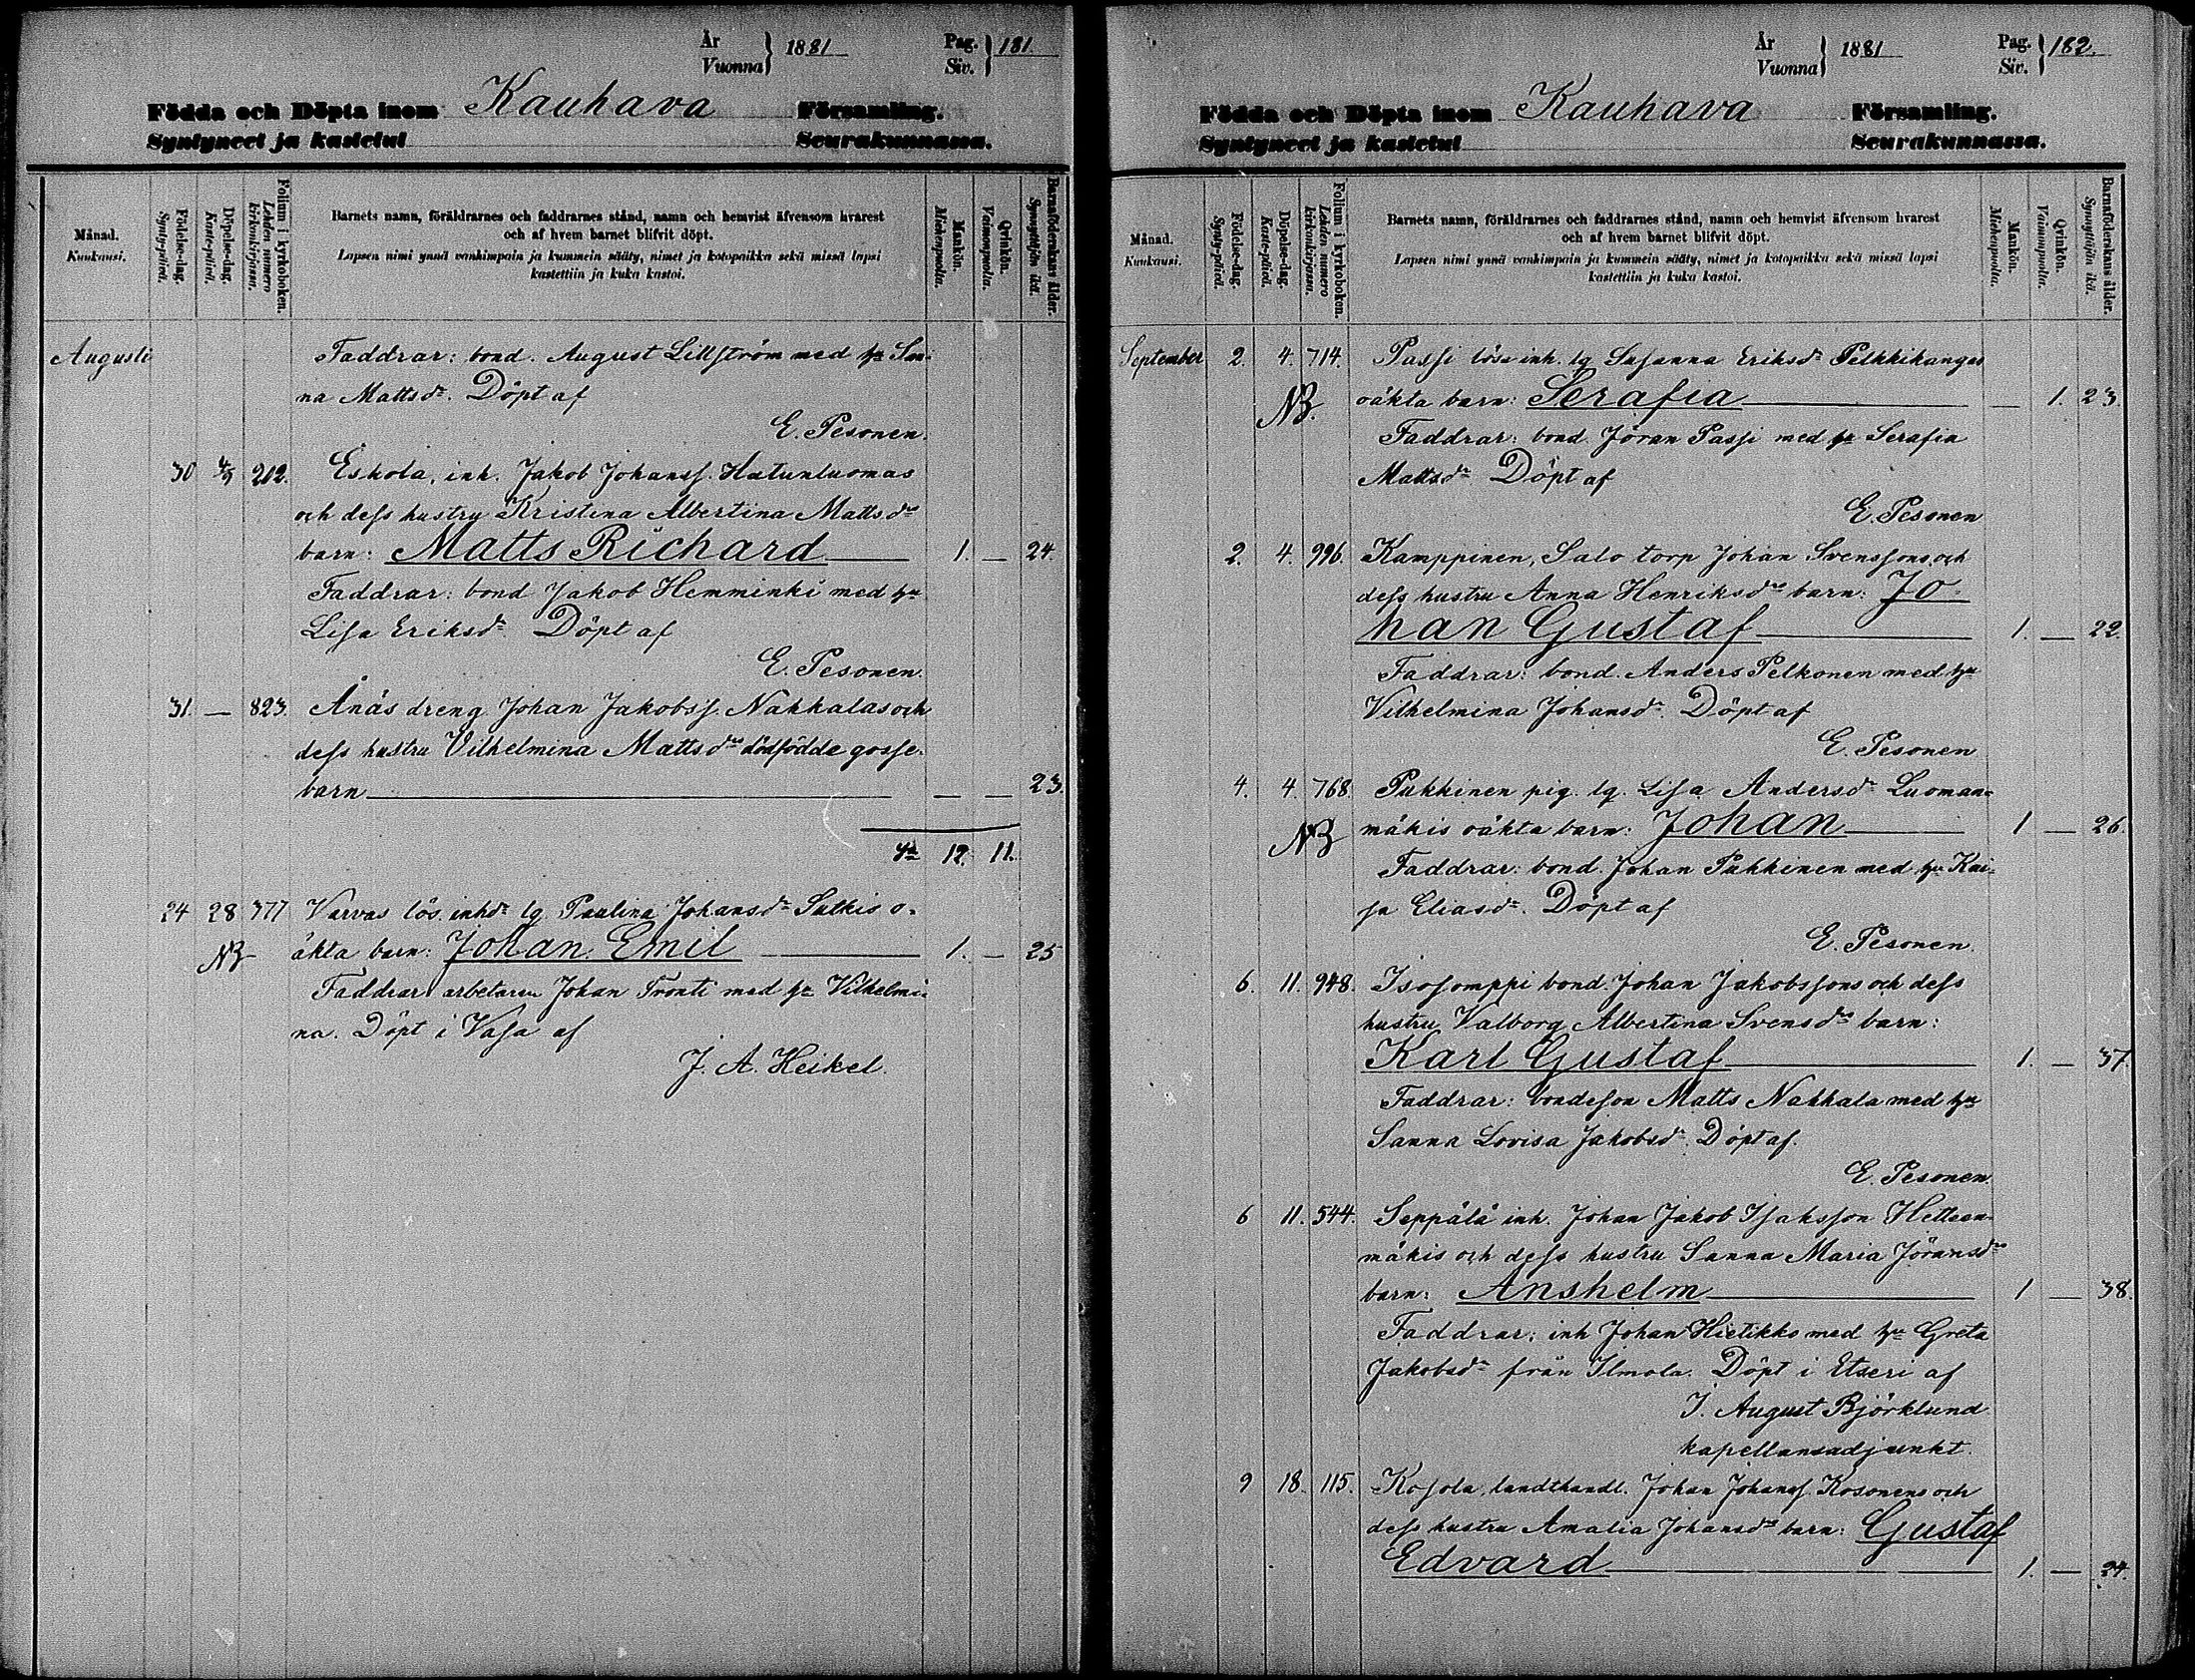 År
Vuonna } 1881 Pag.
Siv. } 181
Födda och Döpta inom Kauhava Församling.
Syntyneet ja kastetut Seurakunnassa.
Månad.
Kuukausi.
Födelse-dag.
Synty-päivä.
Döpelse-dag.
Kaste-päivä.
Folium i kyrkoboken.
Lehden numero kirkonkirjassa.
Barnets namn, föräldrarnes och faddrarnes stånd, namn och hemvist äfvensom hvarest
och af hvem barnet blifvit döpt.
Lapsen nimi ynnä vanhimpain ja kummein sääty, nimet ja kotopaikka sekä missä lapsi
kastettiin ja kuka kastoi.
Mankön.
Miehenpuolta.
Qvinkön.
Vaimonpuolta.
Barnaföderskans ålder.
Synnyttäjän ikä.
Augusti Faddrar: bond. August Lillström med hu San-
na Mattsdr. Döpt af
E. Pesonen.
30 4/9 212. Eskola, inh. Jakob Johanss. Hatunluomas
och dess hustru Kristina Albertina Mattsdrs
barn: Matts Richard 1. — 24.
Faddrar: bond Jakob Hemminki med hu
Lisa Eriksdr. Döpt af
E. Pesonen.
31. — 823. Ånäs dreng Johan Jakobss. Nahkalas och
dess hustru Vilhelmina Mattsdrs dödfödde gosse-
barn — — 23.
12. 11.
24 28 377 Varvas lös. inhdr lg Paulina Johansdr Sulkis o-
NB äkta barn: Johan Emil 1. — 25
Faddrar arbetaren Johan Tronti med hu Vilhelmi-
na. Döpt i Vasa af
J. A. Heikel.
År
Vuonna } 1881 Pag.
Siv. } 182.
Födda och Döpta inom Kauhava Församling.
Syntyneet ja kastetut Seurakunnassa.
Månad.
Kuukausi.
Födelse-dag.
Synty-päivä.
Döpelse-dag.
Kaste-päivä.
Folium i kyrkoboken.
Lehden numero kirkonkirjassa.
Barnets namn, föräldrarnes och faddrarnes stånd, namn och hemvist äfvensom hvarest
och af hvem barnet blifvit döpt.
Lapsen nimi ynnä vanhimpain ja kummein sääty, nimet ja kotopaikka sekä missä lapsi
kastettiin ja kuka kastoi.
Mankön.
Miehenpuolta.
Qvinkön.
Vaimonpuolta.
Barnaföderskans ålder.
Synnyttäjän ikä.
September 2. 4. 714. Passi lösa inh. lg Susanna Eriksdr Pelkkikangas
NB. oäkta barn: Serafia — 1. 23.
Faddrar: bond. Jöran Passi med hu Serafia
Mattsdr Döpt af
E. Pesonen
2. 4. 996. Kamppinen, Salo torp Johan Svenssons och
dess hustru Anna Henriksdrs barn: Jo
han Gustaf 1. — 22.
Faddrar: bond. Anders Pelkonen med hu
Vilhelmina Johansdr. Döpt af
E. Pesonen
4. 4. 768. Pukkinen pig. lg. Lisa Andersdr Luoman-
NB mäkis oäkta barn: Johan 1 — 26.
Faddrar: bond. Johan Pukkinen med hu Kai-
sa Eliasdr. Döpt af
E. Pesonen.
6. 11. 948. Isosomppi bond. Johan Jakobssons och dess
hustru Valborg Albertina Svensdrs barn:
Karl Gustaf 1. — 37.
Faddrar: bondeson Matts Nahkala med hu
Sanna Lovisa Jakobsdr. Döpt af.
E. Pesonen.
6 11. 544. Seppälä inh. Johan Jakob Isaksson Hetteen-
mäkis och dess hustru Sanna Maria Jöransdrs
barn: Anshelm 1 — 38.
Faddrar: inh Johan Hietikko med hu Greta
Jakobsdr från Ilmola. Döpt i Etseri af
J. August Björklund
kapellansadjunkt.
9 18. 115. Kosola, landthandl. Johan Johanss. Kosonens och
dess hustru Amalia Johansdrs barn: Gustaf
Edvard 1. — 24.